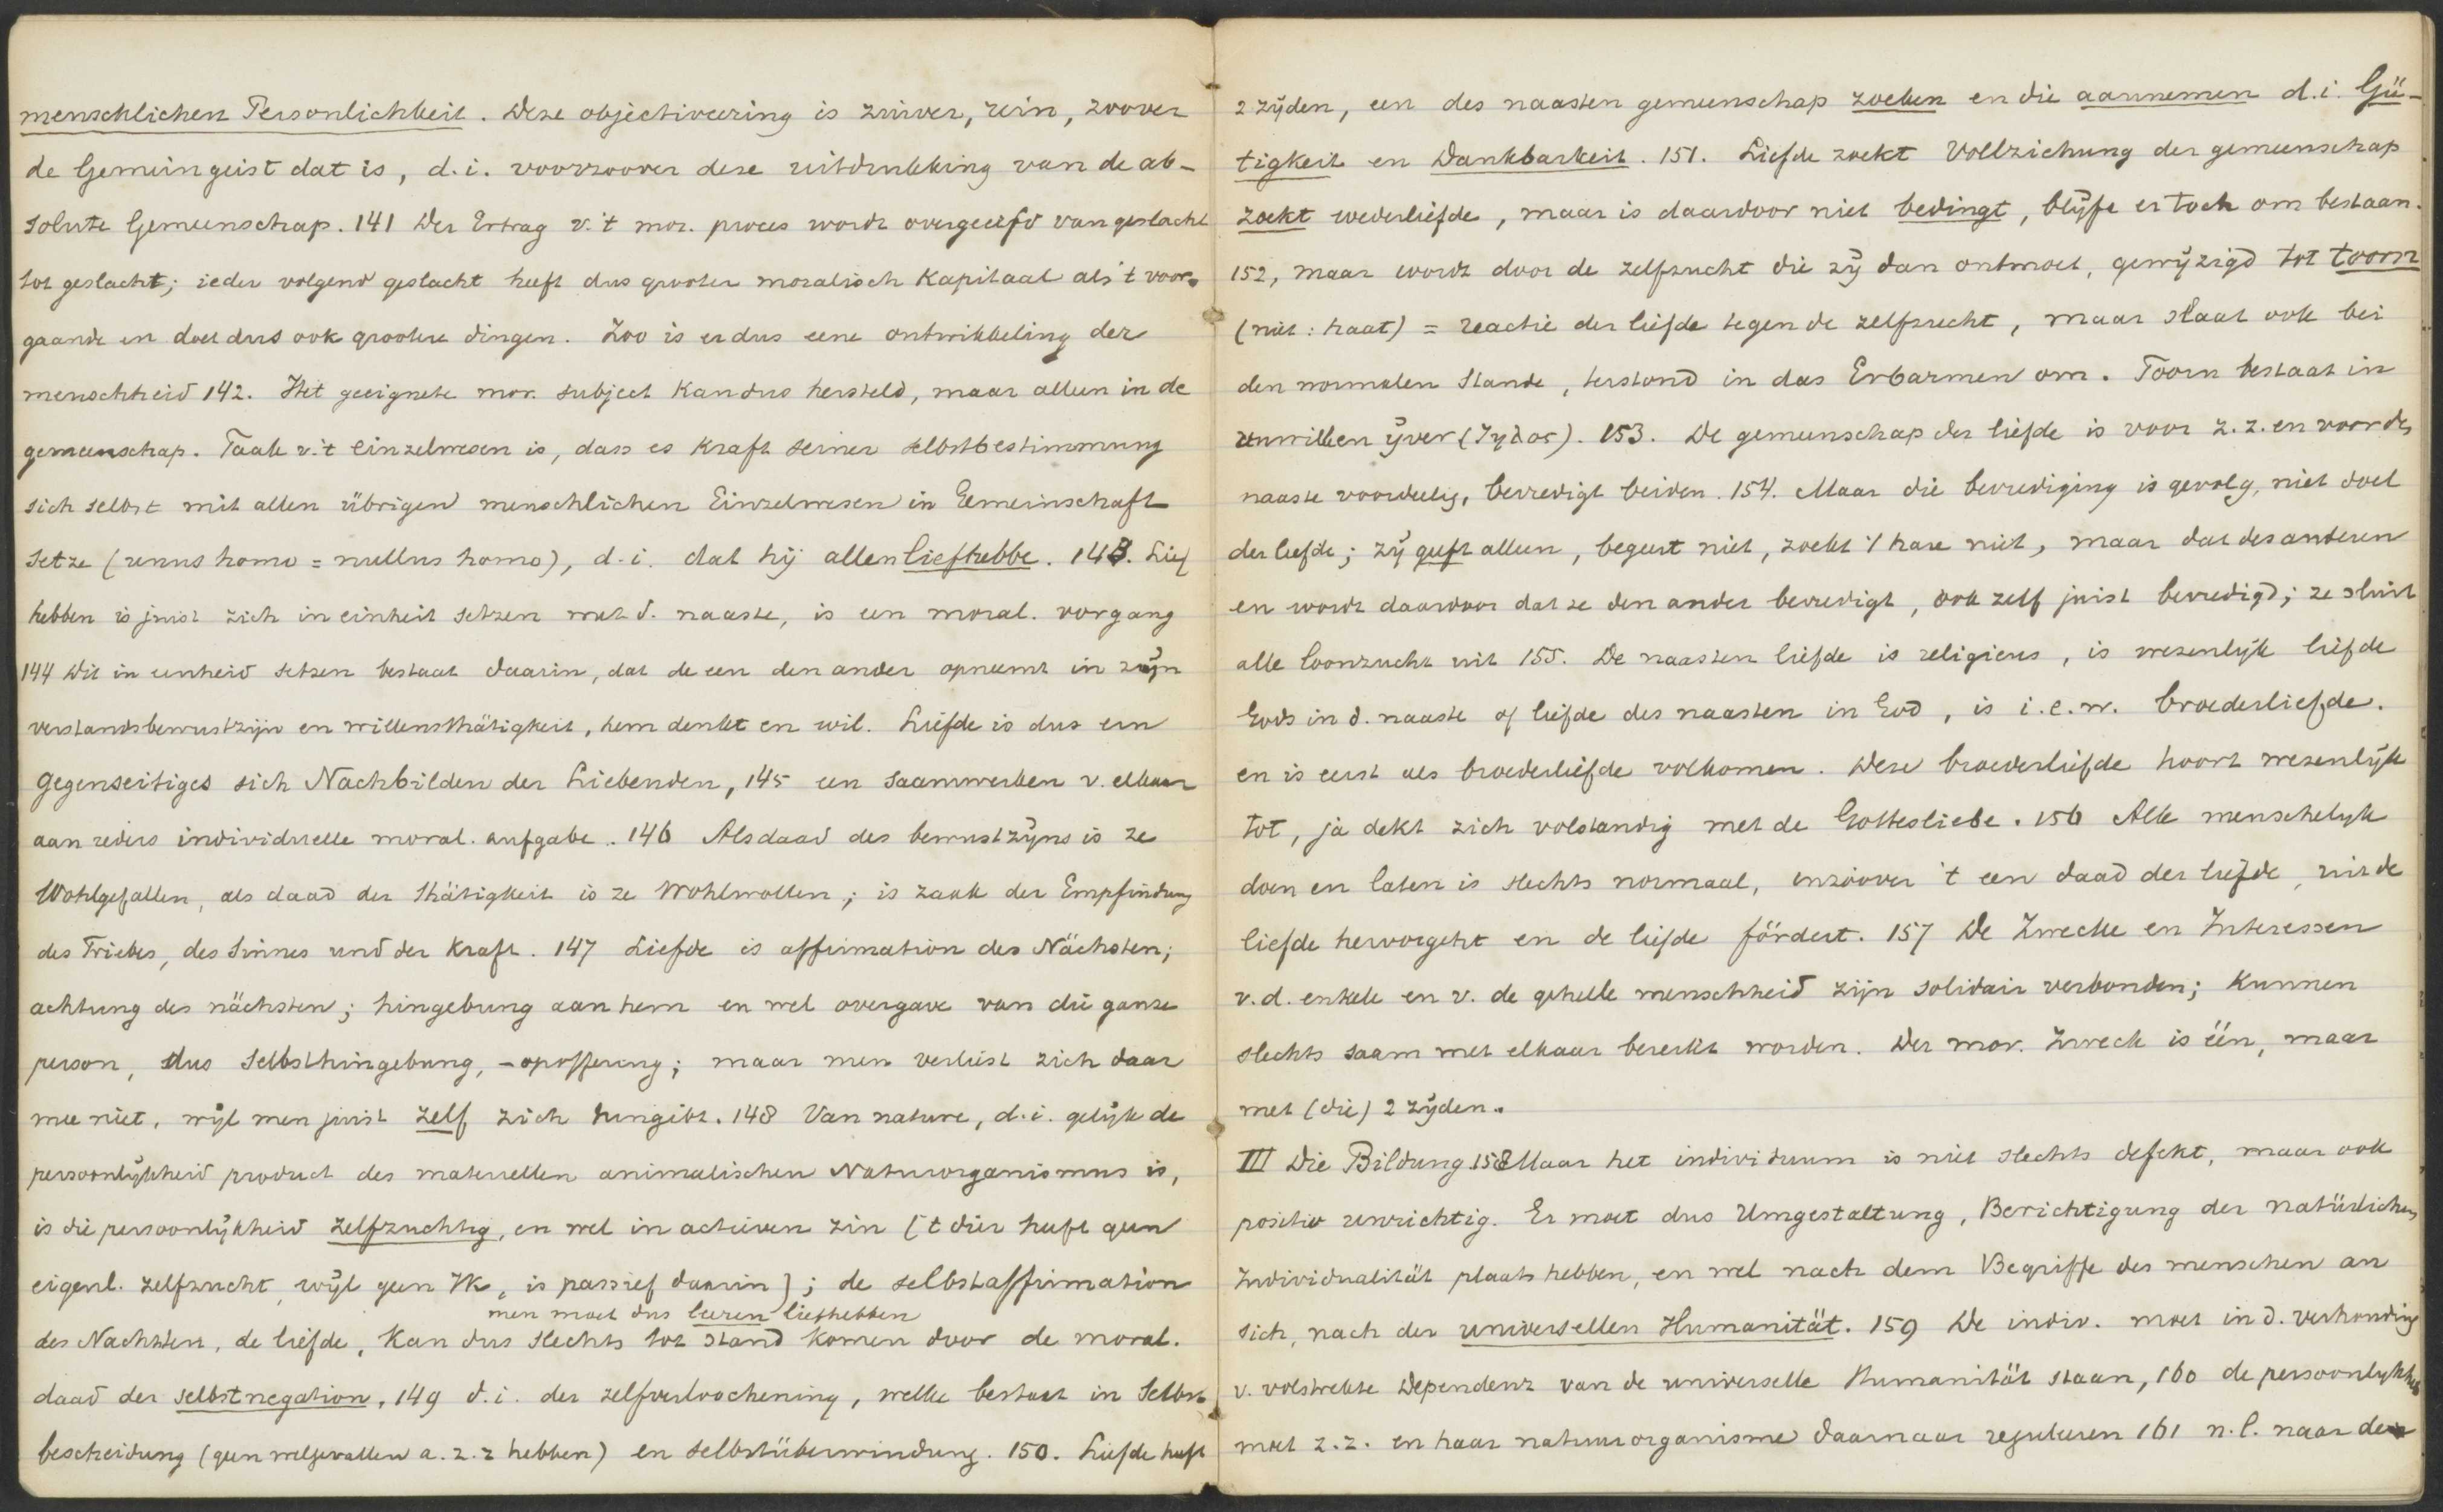 menschlichen Personlichkeit. Deze objectiveering is zuiver, rein, zoover
de Gemeingeist dat is, d.i. voorzoover deze uitdrukking van de ab-
solute Gemeenschap. 141 Der Ertrag v. 't mor. proces wordt overgeërfd van geslacht
tot geslacht; ieder volgend geslacht heeft dus grooter moralisch Kapitaal als 't voor-
gaande en doet dus ook grootere dingen. Zoo is er dus eene ontwikkeling der
menschheid 142. Het geeignete mor. subject kan dus hersteld, maar alleen in de
gemeenschap. Taak v. 't einzelwesen is, dass es kraft seiner selbstbestimmung
sich selbst mit allen übrigen menschlichen Einzelwesen in Gemeinschaft
setze (unus homo = nullus homo), d.i. dat hij allen liefhebbe. 143. Lief
hebben is juist zich in einheit setzen met d. naaste, is een moral. vorgang
144 Dit in eenheid setzen bestaat daarin, dat de een den ander opneemt in zijn
verstandsbewustzijn en willensthätigkeit, hem denkt en wil. Liefde is dus een
gegenseitiges sich Nachbilden der Liebenden, 145 een saamwerken v. elkaar
aan ieders individuelle moral. aufgabe. 146 Als daad des bewustzijns is ze
Wohlgefallen, als daad der thätigkeit is ze Wohlwollen; is zaak der Empfindung
des Triebes, des Sinnes und der Kraft. 147 Liefde is affirmation des Nächsten;
achtung des nächsten; hingebung aan hem en wel overgave van die ganze
person, dus selbsthingebung, -opoffering; maar men verliest zich daar
mee niet, wijl men juist zelf zich hingibt. 148 Van nature, d.i. gelijk de
persoonlijkheid product des materiellen animalischen Naturorganismus is,
is die persoonlijkheid zelfzuchtig, en wel in activen zin ['t dier heeft geen
eigenl. zelfzucht, wijl geen Ik, is passief daarin]; de selbstaffirmation
men moet dus leeren liefhebben
des Nachsten, de liefde, kan dus slechts tot stand komen door de moral.
daad der selbstnegation, 149 d.i. der zelfverloochening, welke bestaat in Selbst
bescheidung (geen welgevallen a. z. z hebben) en selbstüberwindung. 150. Liefde heeft
2 zijden, een des naasten gemeenschap zoeken en die aannemen d.i. Gü-
tigkeit en Dankbarkeit. 151. Liefde zoekt Vollziehung der gemeenschap
zoekt wederliefde, maar is daardoor niet bedingt, blijft er toch om bestaan.
152, maar wordt door de zelfzucht die zij dan ontmoet, gewijzigd tot toorn
(niet: haat) = reactie der liefde tegen de zelfzucht, maar slaat ook bei
den normalen Stande, terstond in das Erbarmen om. Toorn bestaat in
unwillen ijver (ζηλος). 153. De gemeenschap der liefde is voor z. z. en voor des
naaste voordeelig, bevredigt beiden. 154. Maar die bevrediging is gevolg, niet doel
der liefde; zij geeft alleen, begeert niet, zoekt 't hare niet, maar dat des anderen
en wordt daardoor dat ze den ander bevredigt, ook zelf juist bevredigd; ze sluit
alle loonzucht uit 155. De naasten liefde is religieus, is wezenlijk liefde
Gods in d. naaste of liefde des naasten in God, is i.e.w. broederliefde.
en is eerst als broederliefde volkomen. Deze broederliefde hoort wezenlijk
tot, ja dekt zich volstandig met de Gottesliebe. 156 Alle menschelijk
doen en laten is slechts normaal, inzoover 't een daad der liefde, uit de
liefde hervorgeht en de liefde fördert. 157 De Zwecke en Interessen
v. d. enkele en v. de geheele menschheid zijn solidair verbonden; kunnen
slechts saam met elkaar bereikt worden. Der mor. Zweck is één, maar
met (die) 2 zijden.
III Die Bildung. 158 Maar het individuum is niet slechts defekt, maar ook
positiv unrichtig. Er moet dus Umgestaltung, Berichtigung der natürlichen
Individualität plaats hebben, en wel nach dem Begriffe des menschen an
sich, nach der universellen Humanität. 159 De indiv. moet in d. verhouding
v. volstrekte Dependenz van de universelle Humanität staan, 160 de persoonlijkheid
moet z. z. en haar natuurorganisme daarnaar reguleren 161 n.l. naar den